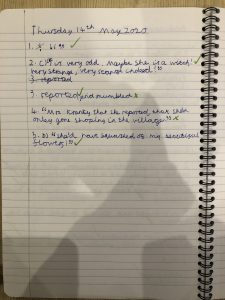 Thursday 14th May 2020
1.
2. is very odd. Maybe she is a witch!
Very strange, very strange indeed!"
3. reported
3. reported and mumbled
4. "Mrs that she reported, that she'd
only gone shopping in the village"
5. "she'd have squashed all my beautiful
flowers!"